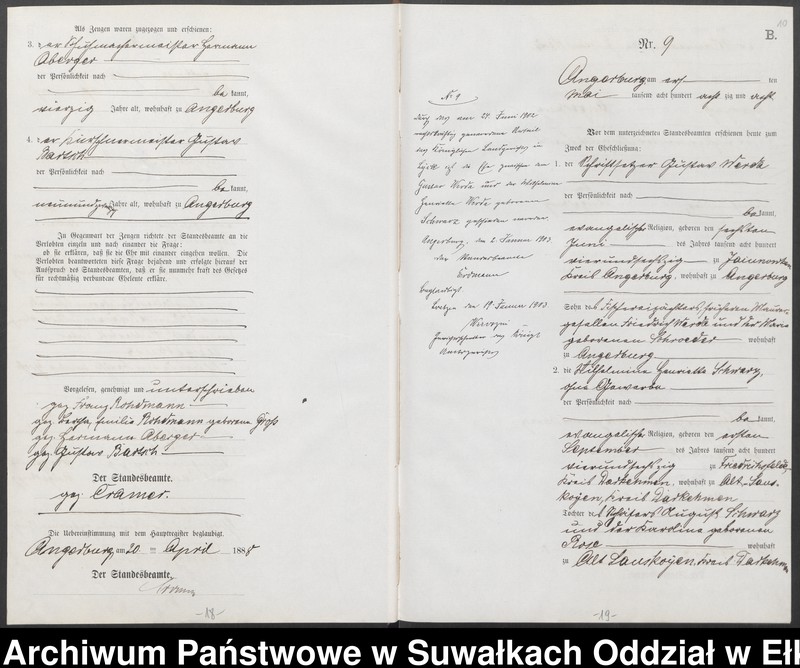 Als Zeugen waren zugezogen und erschienen:
3. der Schuhmachermeister Hermann
Aberger
der Persönlichkeit nach
be kannt,
vierzig Jahre alt, wohnhaft zu Angerburg
4. der Kürschnermeister Gustav
Bartsch
der Persönlichkeit nach
be kannt,
neunundzwanzig Jahre alt, wohnhaft zu Angerburg
In Gegenwart der Zeugen richtete der Standesbeamte an die
Verlobten einzeln und nach einander die Frage:
ob sie erklären, daß sie die Ehe mit einander eingehen wollen. Die
Verlobten beantworteten diese Frage bejahend und erfolgte hierauf der
Ausspruch des Standesbeamten, daß er sie nunmehr kraft des Gesetzes
für rechtmäßig verbundene Eheleute erkläre.
Vorgelesen, genehmigt und unterschrieben
gez. Franz Rohdmann
gez. Emilie Rohdmann geborene Groß
gez. Hermann Aberger
gez. Gustav Bartsch
Der Standesbeamte.
gez. Cramer.
Die Uebereinstimmung mit dem Hauptregister beglaubigt.
Angerburg, am 20 ten April 1888
Der Standesbeamte.
-18-
B.
Nr. 9
Angerburg am ersten
Mai tausend acht hundert acht zig und acht
Vor dem unterzeichneten Standesbeamten erschienen heute zum
Zweck der Eheschließung:
1. der Schriftsetzer Gustav Werda
der Persönlichkeit nach
be kannt,
evangelischer Religion, geboren den sechsten
Juni des Jahres tausend acht hundert
vierundsechszig zu
Kreis Angerburg, wohnhaft zu Angerburg
Sohn des Fischereipächters, früheren Maurer-
gesellen Friedrich Werda und der Marie
geborenen Schroeder wohnhaft
zu Angerburg
2. die Wilhelmine Henriette Schwarz,
ohne Gewerbe
der Persönlichkeit nach
be kannt,
evangelischer Religion, geboren den ersten
September des Jahres tausend acht hundert
vierundsechszig zu
Kreis Darkehmen, wohnhaft zu Alt-Saus-
koyen, Kreis Darkehmen
Tochter des Schäfers August Schwarz
und der Karoline geborenen
Rose wohnhaft
zu Alt Sauskoyen, Kreis Darkehmen
No 9
Durch das am 24. Juni 1902
rechtskräftig gewordene Urteil
des Königlichen Landgerichts in
Lyck ist die Ehe zwischen dem
Gustav Werda und der Wilhelmine
Henriette Werda geborenen
Schwarz geschieden worden.
Angerburg, den 2. Januar 1903.
Der Standesbeamte
Erdmann
Beglaubigt
Loetzen den 19 Januar 1903
-19-
Archiwum Państwowe w Suwałkach Oddział w Eł